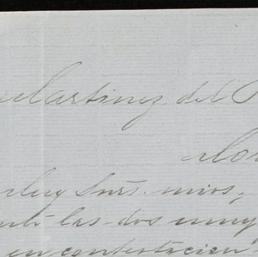 Martinez del
Muy Sres. mios,
las dos muy
en contestacion